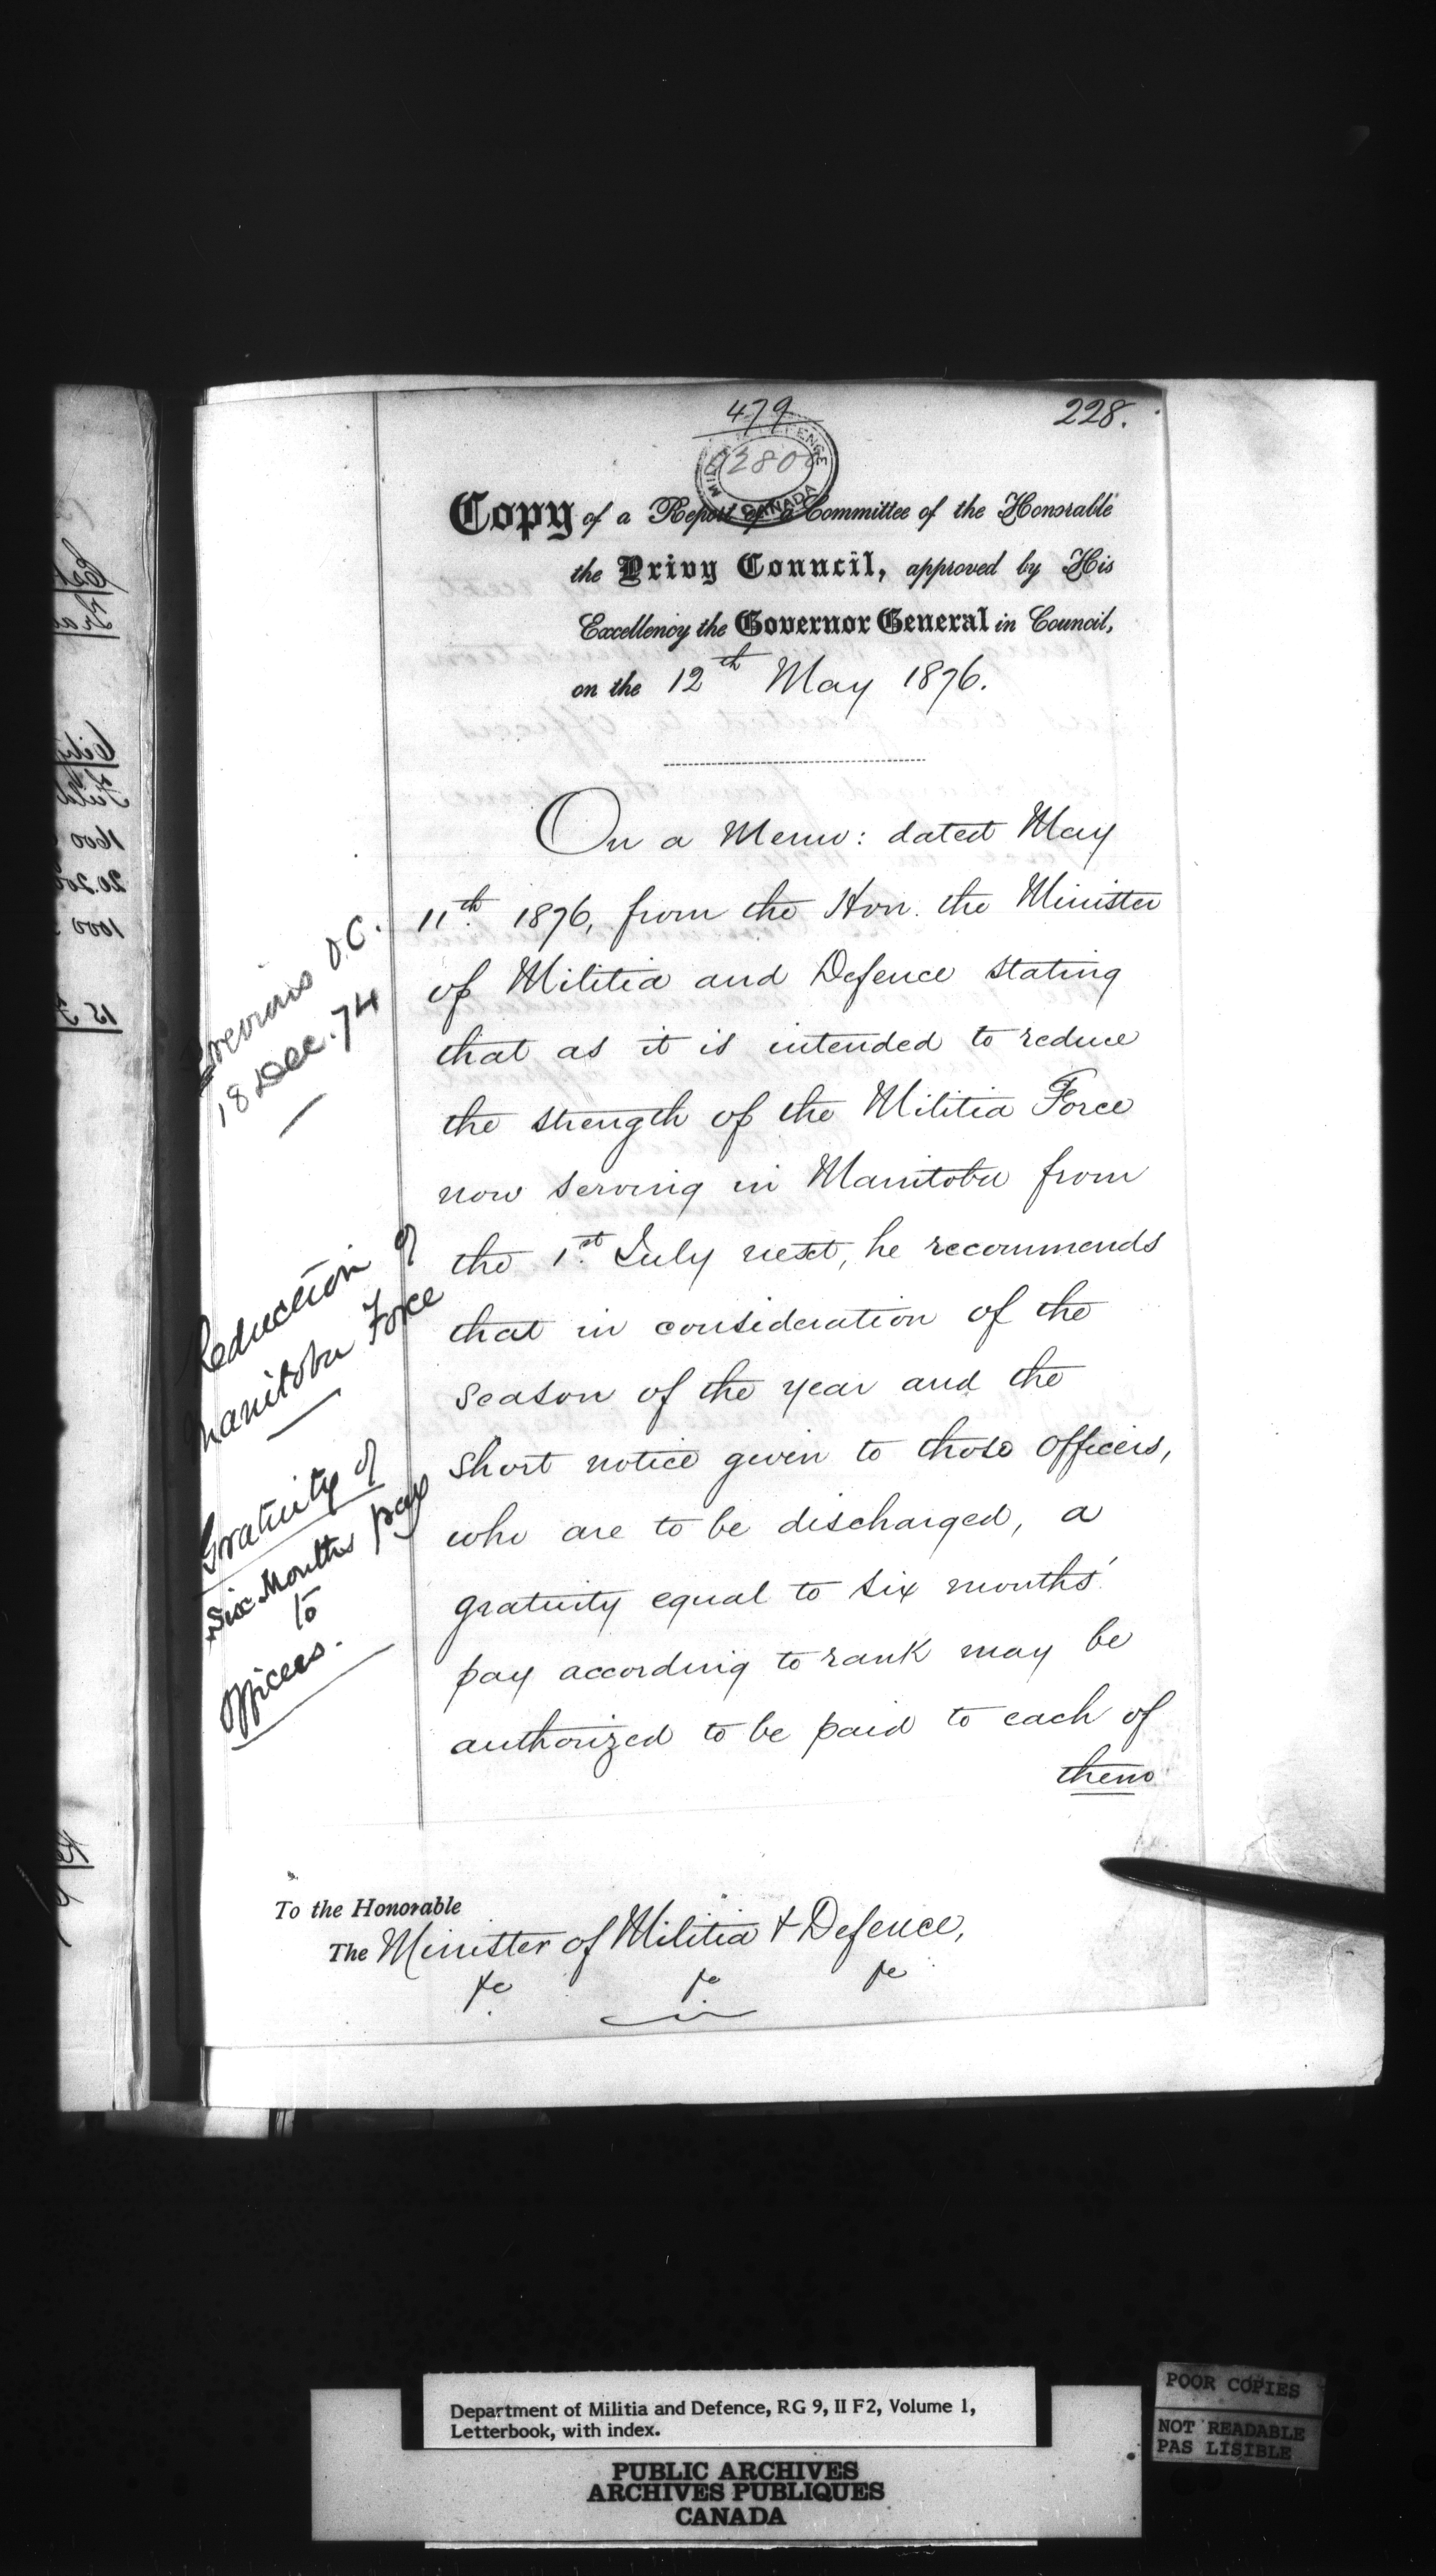 479
228.
MILITIA DEFENCE
02808
CANADA
Copy of a Report of a Committee of the Honorable
the Privy Council, approved by His
Excellency the Governor General in Council,
on the 12th May 1876.
On a Memo: dated May
11th 1876, from the Hon. the Minister
of Militia and Defence stating
that as it is intended to reduce
the strength of the Militia Force
now serving in Manitoba from
the 1st July next, he recommends
that in consideration of the
season of the year and the
short notice given to those officers,
who are to be discharged, a
gratuity equal to six months'
pay according to rank may be
authorized to be paid to each of
them
Previous O.C.
18 Dec. 74
Reduction of
Manitoba Force
Gratuity of
Six Months pay
to
Officers.
To the Honorable
The Minister of Militia & Defence,
&c &c &c
Department of Militia and Defence, RG 9, II F2, Volume 1,
Letterbook, with index.
PUBLIC ARCHIVES
ARCHIVES PUBLIQUES
CANADA
POOR COPIES
NOT READABLE
PAS LISIBLE